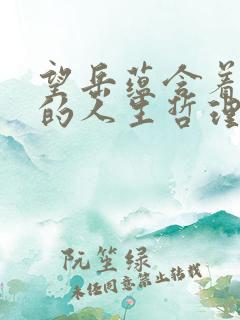 望岳蕴含着
的人生哲理
阮笙绿
未经同意禁止转载